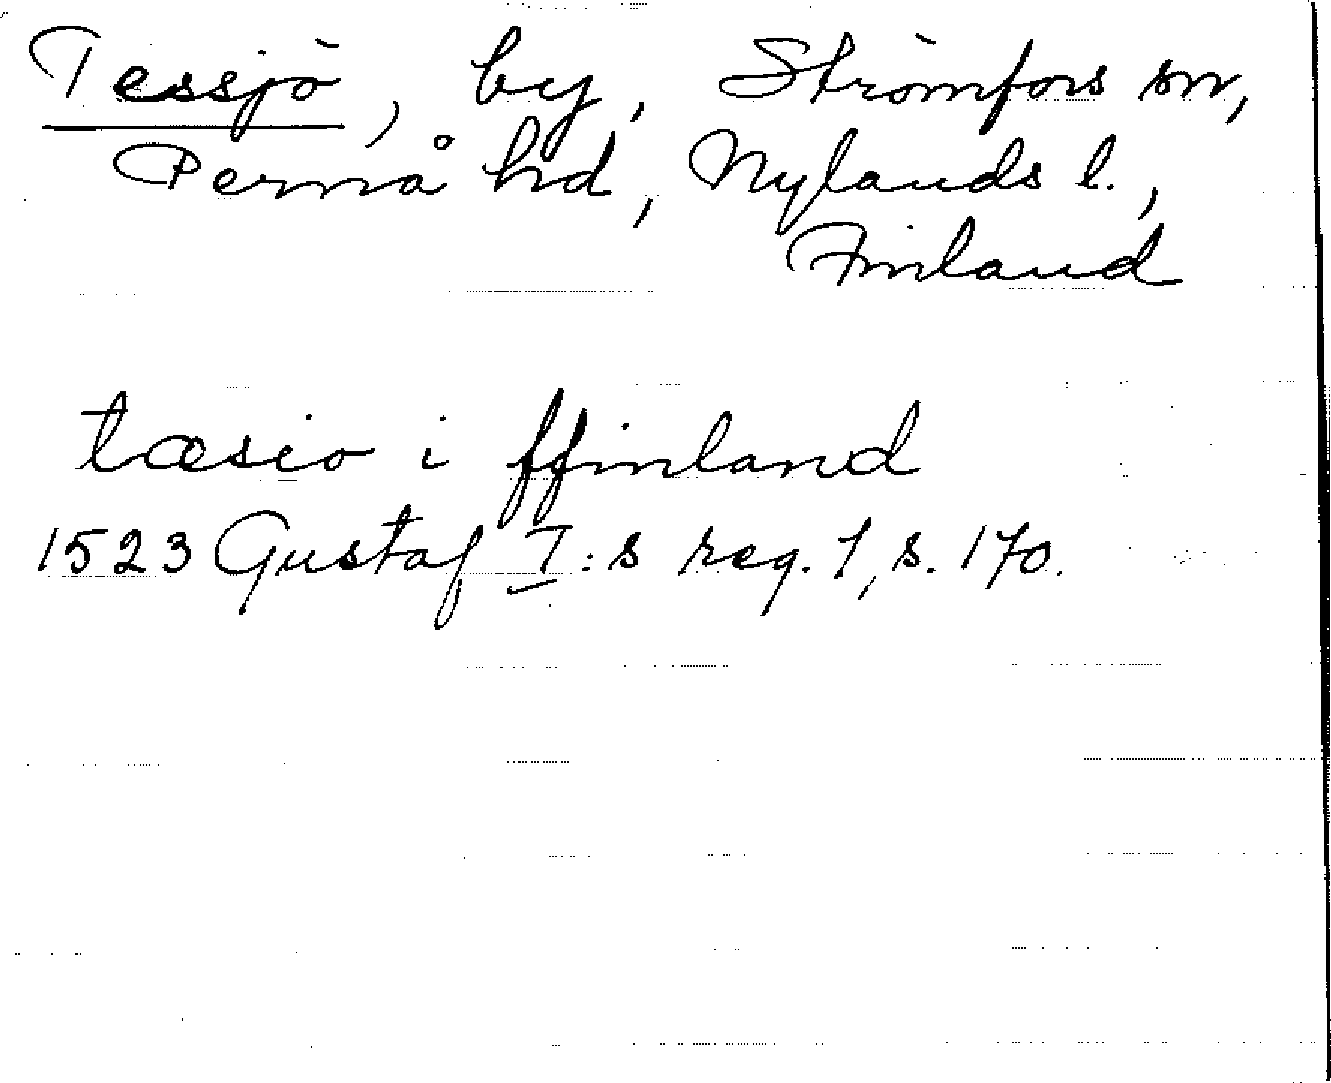 Tessjö, by, Strömfors sn,
Pernå hd, Nylands l.,
Finland
tæsio i ffinland
1523 Gustaf I:s reg. 1, s. 170.